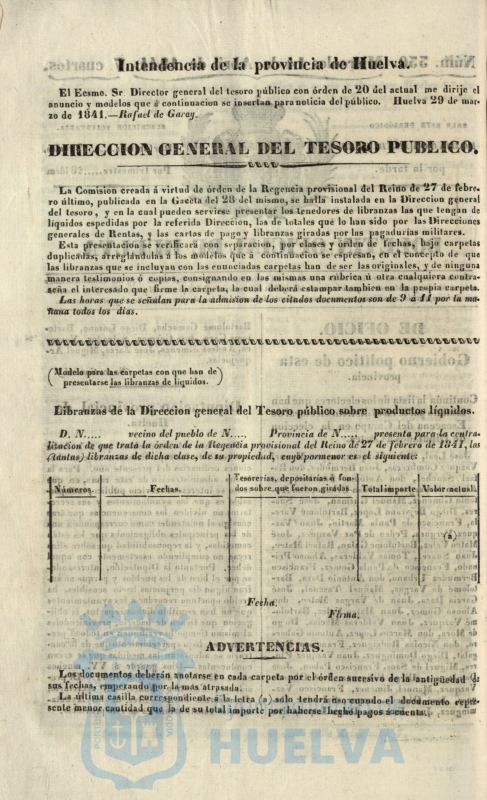 Intendencia de la provincia de Huelva.
El Ecsmo. Sr. Director general del tesoro público con órden de 20 del actual me dirije el
anuncio y modelos que á continuacion se insertan para noticia del público. Huelva 29 de mar-
zo de 1841.—Rafael de Garay.
DIRECCION GENERAL DEL TESORO PUBLICO.
La Comision creada á virtud de órden de la Regencia provisional del Reino de 27 de febre-
ro último, publicada en la Gaceta del 28 del mismo, se halla instalada en la Direccion general
del tesoro, y en la cual pueden servirse presentar los tenedores de libranzas las que tengan de
líquidos espedidas por la referida Direccion, las de totales que lo han sido por las Direcciones
generales de Rentas, y las cartas de pago y libranzas giradas por las pagadurías militares.
Esta presentacion se verificará con separacion, por clases y órden de fechas, bajo carpetas
duplicadas, arreglándolas á los modelos que á continuacion se espresan, en el concepto de que
las libranzas que se incluyan con las enunciadas carpetas han de ser las originales, y de ninguna
manera testimonios ó copias, consignando en las mismas una rúbrica ú otra cualquiera contra-
seña el interesado que firme la carpeta, la cual deberá estampar tambien en la propia carpeta.
Las horas que se señalan para la admision de los citados documentos son de 9 a 11 por la ma-
ñana todos los dias.
(Modelo para las carpetas con que han de
presentarse las libranzas de líquidos.)
Libranzas de la Direccion general del Tesoro público sobre productos líquidos.
D. N..... vecino del pueblo de N...., Provincia de N..... presenta para la centra-
litacion de que trata la órden de la Regencia provisional del Reino de 27 de febrero de 1841, las
(tantas) libranzas de dicha clase, de su propiedad, cuyo pormenor es el siguiente:
Números. Fechas. Tesorerías, depositarías ó fon-
dos sobre que fueron giradas. Total importe Valor actual.
(a)
Fecha.
Firma.
ADVERTENCIAS.
Los documentos deberán anotarse en cada carpeta por el órden sucesivo de la antigüedad de
sus fechas, empezando por la mas atrasada.
La última casilla correspondiente á la letra (a) solo tendrá uso cuando el documento repre-
sente menor cantidad que la de su total importe por haberse hecho pagos á cuenta.
HUELVA